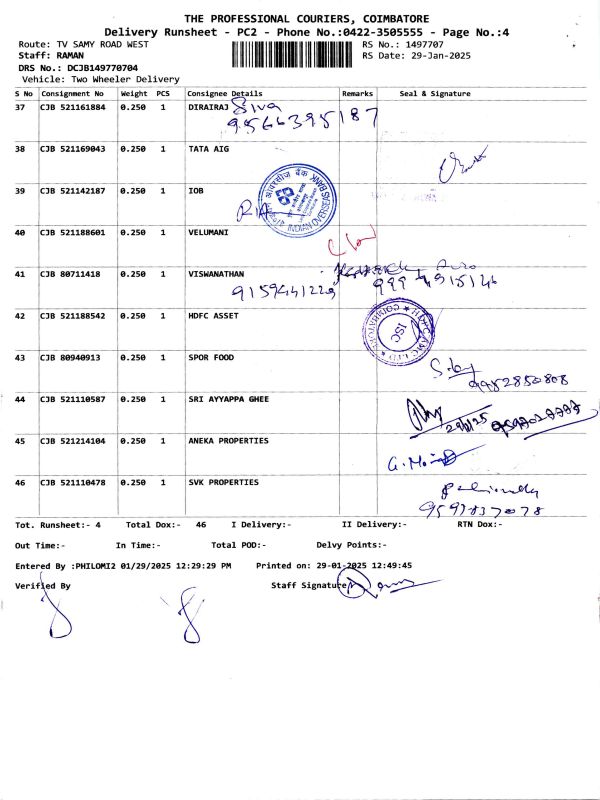 THE PROFESSIONAL COURIERS, COIMBATORE
Delivery Runsheet - PC2 - Phone No.:0422-3505555 - Page No.:4
Route: TV SAMY ROAD WEST RS No.: 1497707
Staff: RAMAN RS Date: 29-Jan-2025
DRS No.: DCJB149770704
Vehicle: Two Wheeler Delivery
S No Consignment No Weight PCS Consignee Details Remarks Seal & Signature
37 CJB 521161884 0.250 1 DIRAIRAJ Siva
9566395187
38 CJB 521169043 0.250 1 TATA AIG
39 CJB 521142187 0.250 1 IOB
INDIAN OVERSEAS BANK
40 CJB 521188601 0.250 1 VELUMANI
41 CJB 80711418 0.250 1 VISWANATHAN
9159441229
42 CJB 521188542 0.250 1 HDFC ASSET
ISC
43 CJB 80940913 0.250 1 SPOR FOOD
9952850808
44 CJB 521110587 0.250 1 SRI AYYAPPA GHEE
29/1/25
45 CJB 521214104 0.250 1 ANEKA PROPERTIES
46 CJB 521110478 0.250 1 SVK PROPERTIES
9597837078
Tot. Runsheet:- 4 Total Dox:- 46 I Delivery:- II Delivery:- RTN Dox:-
Out Time:- In Time:- Total POD:- Delvy Points:-
Entered By :PHILOMI2 01/29/2025 12:29:29 PM Printed on: 29-01-2025 12:49:45
Verified By Staff Signature